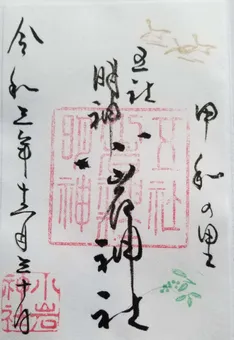 甲和の里
五社
明神
小岩神社
令和三年十二月三十日
小岩
神社
五社
明神